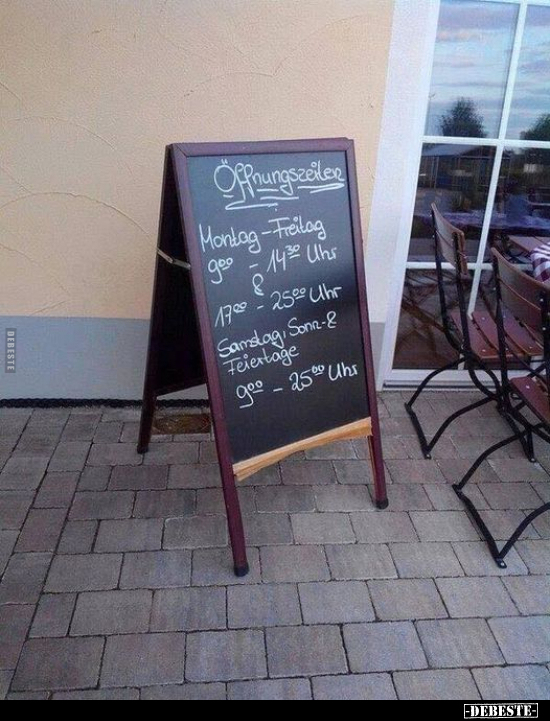 Öffnungszeiten
Montag - Freitag
9⁰⁰ - 14³⁰ Uhr
&
17⁰⁰ - 25⁰⁰ Uhr
Samstag, Sonn- &
Feiertage
9⁰⁰ - 25⁰⁰ Uhr
DEBESTE
-DEBESTE-